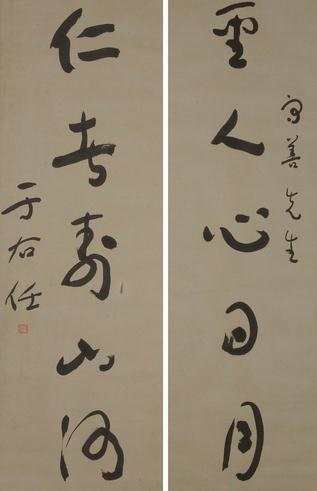 守善先生
聖人心日月
仁者壽山河
于右任